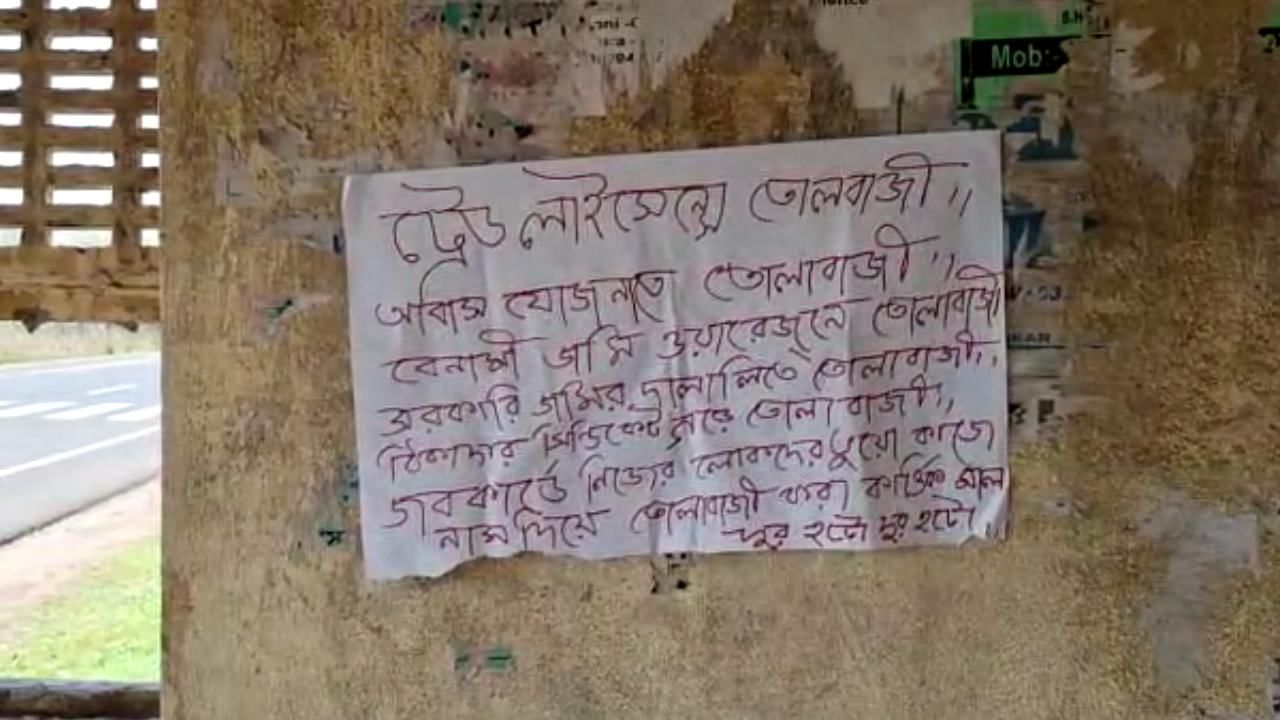 Mob:-
ট্রেড লাইসেন্সে তোলবাজী ।।
আবাস যোজনাতে তোলাবাজী ।।
বেনামী জমি ওয়ারেজনে তোলাবাজী
সরকারি জমির দালালিতে তোলাবাজী ।।
ঠিকাদার সিন্ডিকেট গড়ে তোলাবাজী ।।
জবকার্ডে নিজের লোকদের ভুয়ো কাজে
নাম দিয়ে তোলাবাজী করা কার্ত্তিক মাল
দূর হটো দূর হটো ।।